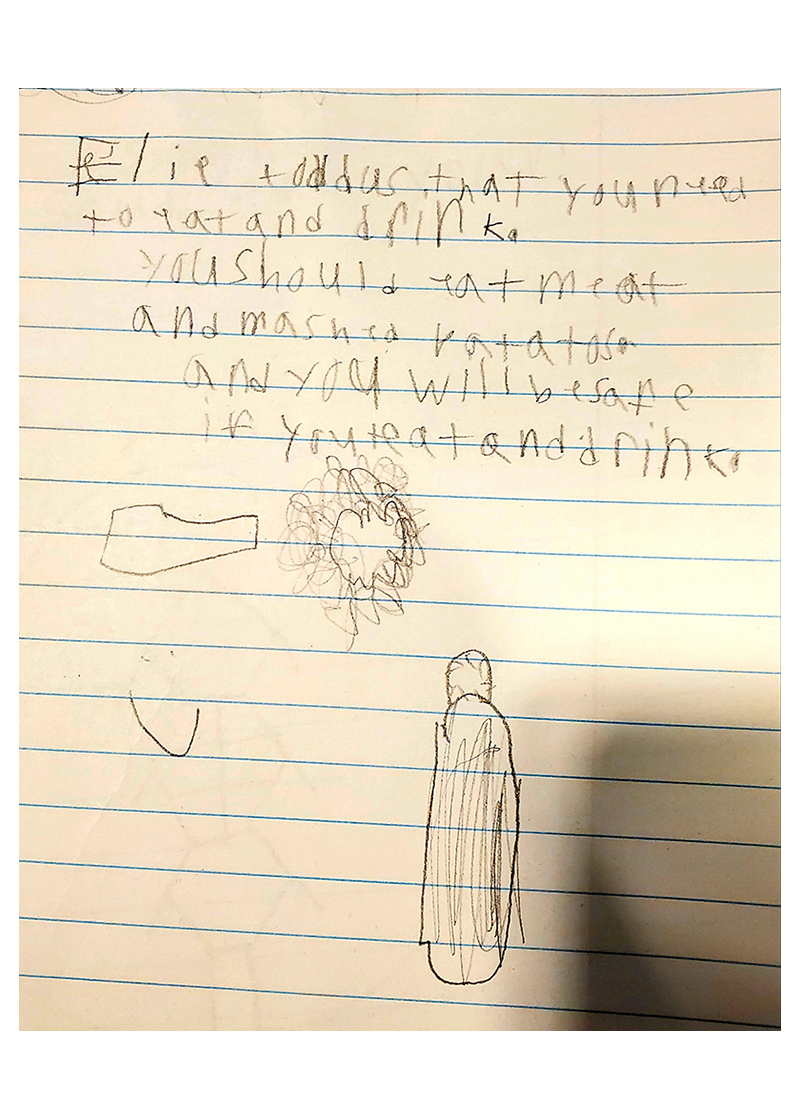 Elie toddus that you need
to eat and drink.
you should eat meat
and mashed patatos.
and you will be safe
if you eat and drink.